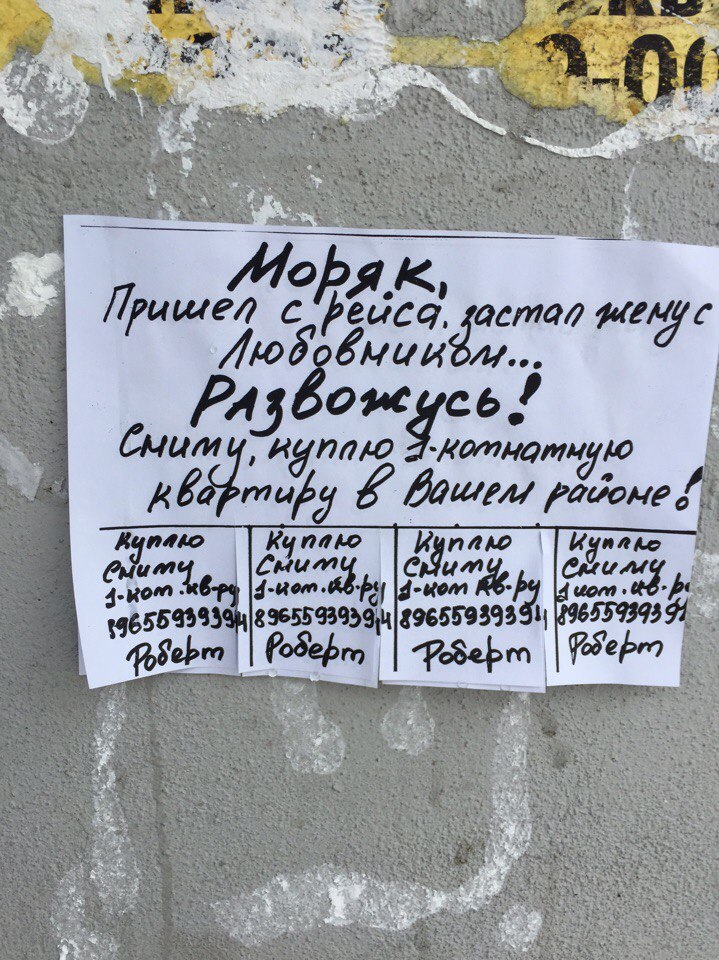 О-ОО
Моряк,
Пришел с рейса, застал жену с
Любовником...
Развожусь!
Сниму, куплю 1-комнатную
квартиру в Вашем районе!
Куплю
Сниму
1-ком.кв-ру
89655939394
Роберт
Куплю
Сниму
1-ком.кв-ру
89655939394
Роберт
Куплю
Сниму
1-ком кв-ру
89655939394
Роберт
Куплю
Сниму
1-ком.кв-р
8965593939
Роберт